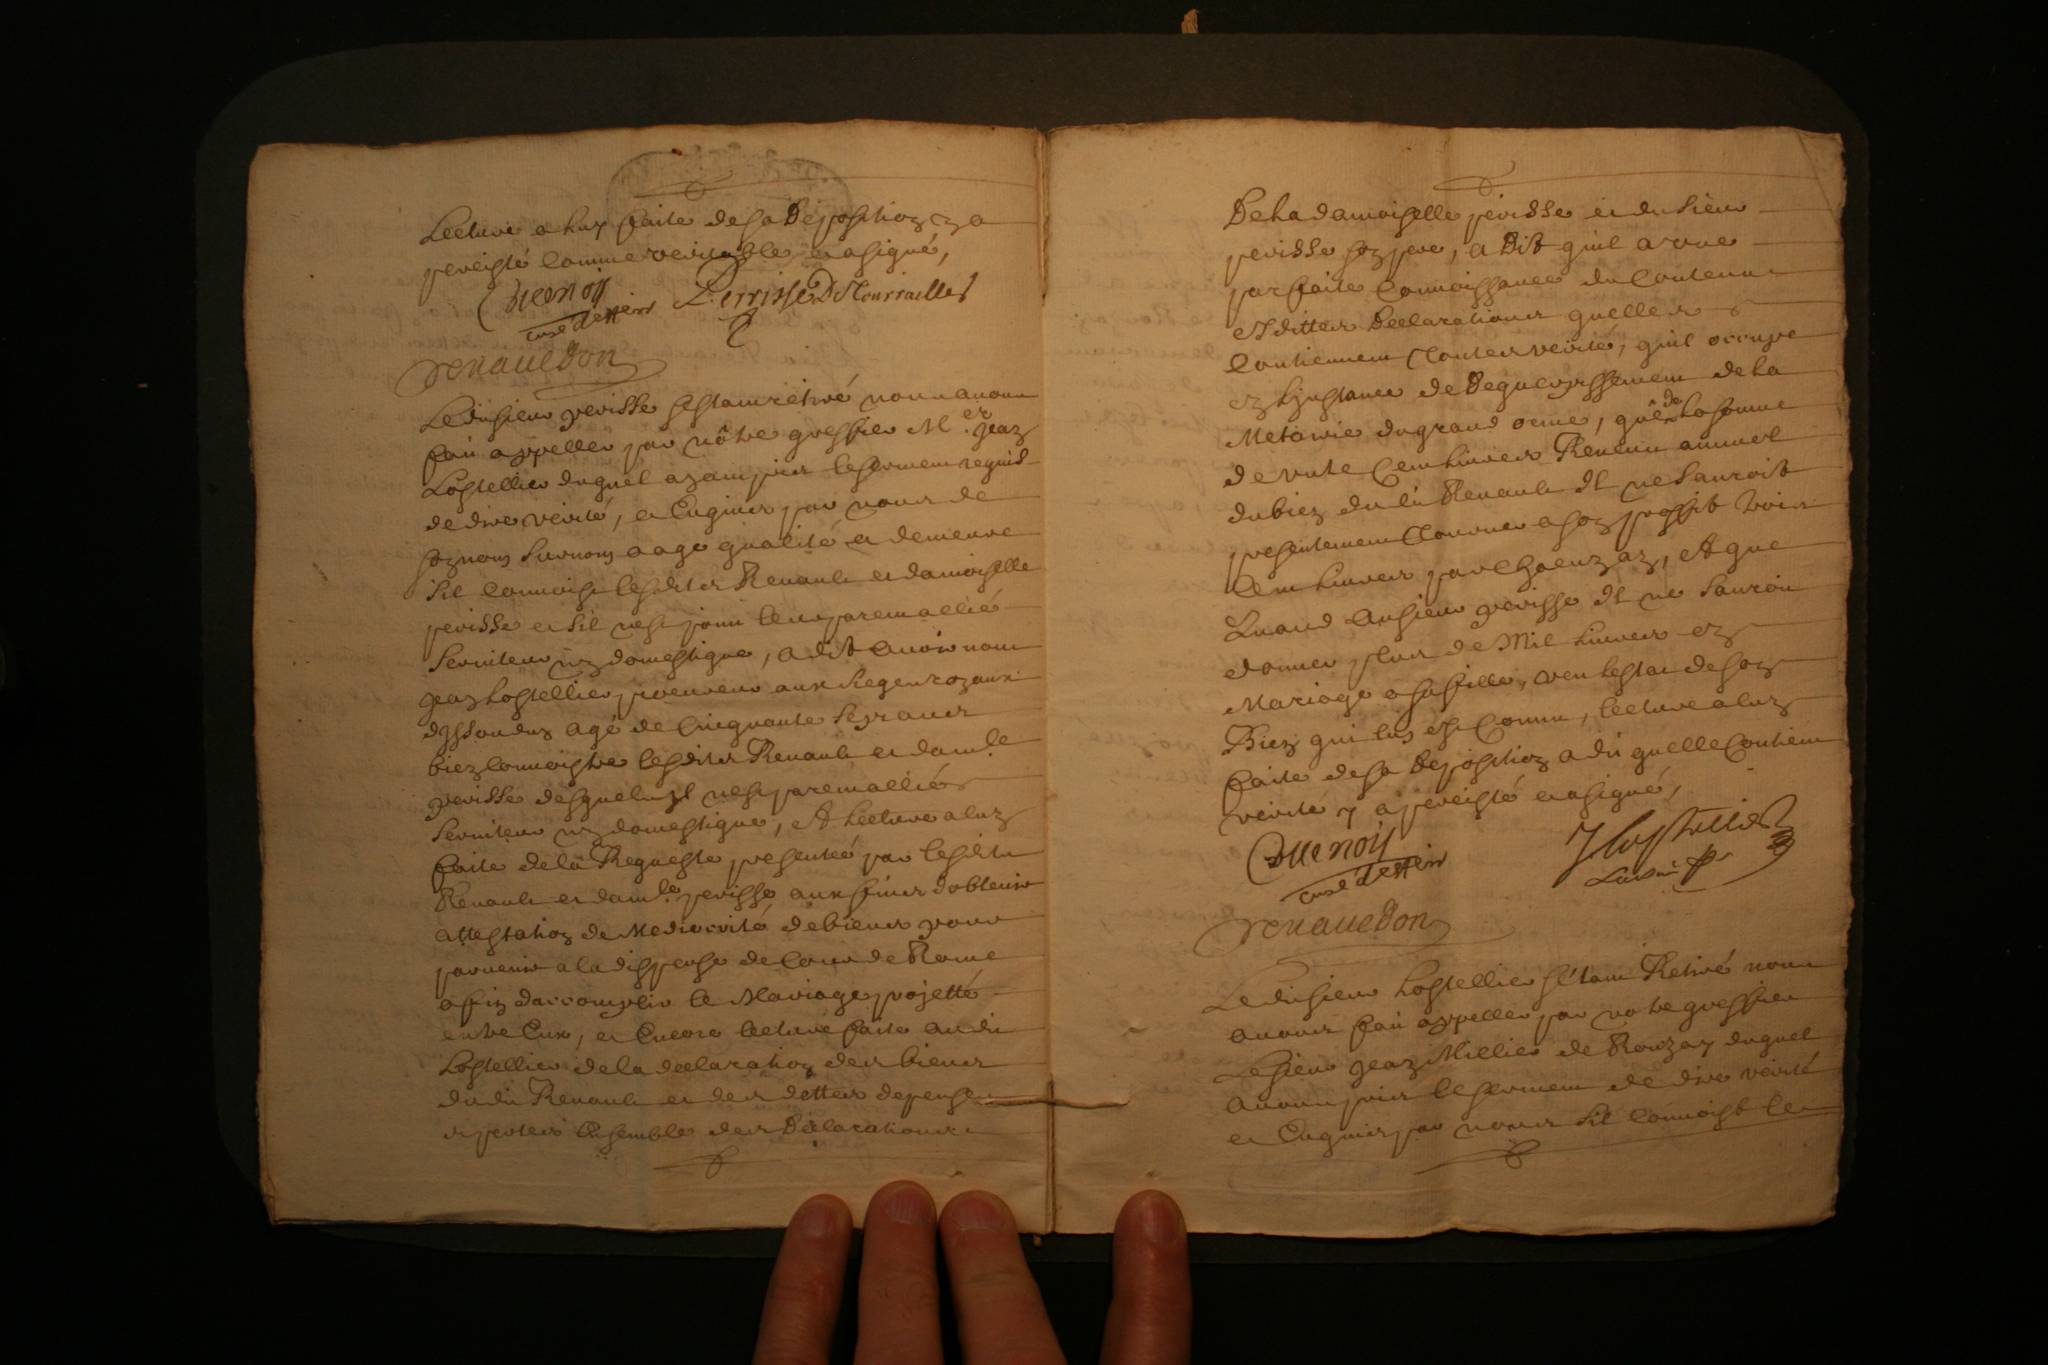 Lecture a luy faite de sa Deposition y a
percisté comme veritable et a signé,
Guenois Perrisse D Tourrailles
curé d'essein
renauldon
Ledit sieur perisse s'estant retiré nous avons
fait appeller par nôtre greffier M.er Jean
Lostellier duquel ayant pris le serment requis
de dire verité, et Enquis par nous de
son nom surnom aage qualité et demeure
sil connoist lesdits Renault et damoiselle
perisse et sil nest point leur parent allié
serviteur ny domestique, a dit avoir nom
Jean Lostellier procureur aux sieges royaux
dissoudun agé de Cinquante sept ans
bien connoistre lesdits Renault et dam.lle
perisse desquels il nest parent allié
serviteur ny domestique, Et lecture a luy
faite de la Requeste presentée par lesdits
Renault et dam.lle perisse aux fins dobtenir
attestation de Mediocrité de biens pour
parvenir a la dispense de Cour de Rome
afin daccomplir le Mariage projetté
entre Eux, et Encore lecture faite audit
Lostellier de la declaration des biens
dudit Renault et des dettes
et pertes Ensemble des Declarations
De la damoiselle perisse et du sieur
perisse son pere, a Dit quil a une
parfaite Connoissance du Contenu
esdittes Declarations quelles
Contiennent toutes verité, quil occupe
en L'instance de Deguerpissement de la
Metairie du grand orme, que de la somme
de Cent livres Revenu annuel
du bien dudit Renault Il ne sauroit
presentement tourner a son proffit trois
Cent livres par Chacun an, Et que
Quand Au sieur perisse Il ne sauroit
donner plus de Mil livres en
Mariage a sa fille, veu lestat de son
Bien qui luy est Connu, lecture a luy
faite de sa Deposition a dit quelle Contient
verité y a percisté et a signé,
Guenois J Lostellier
curé d'essein
renauldon
Ledit sieur Lostellier s'étant Retiré nous
avons fait appeller par notre greffier
Le sieur Jean Millier de Rouzay duquel
avons pris le serment de dire verité
et Enquis par nous sil connoist les